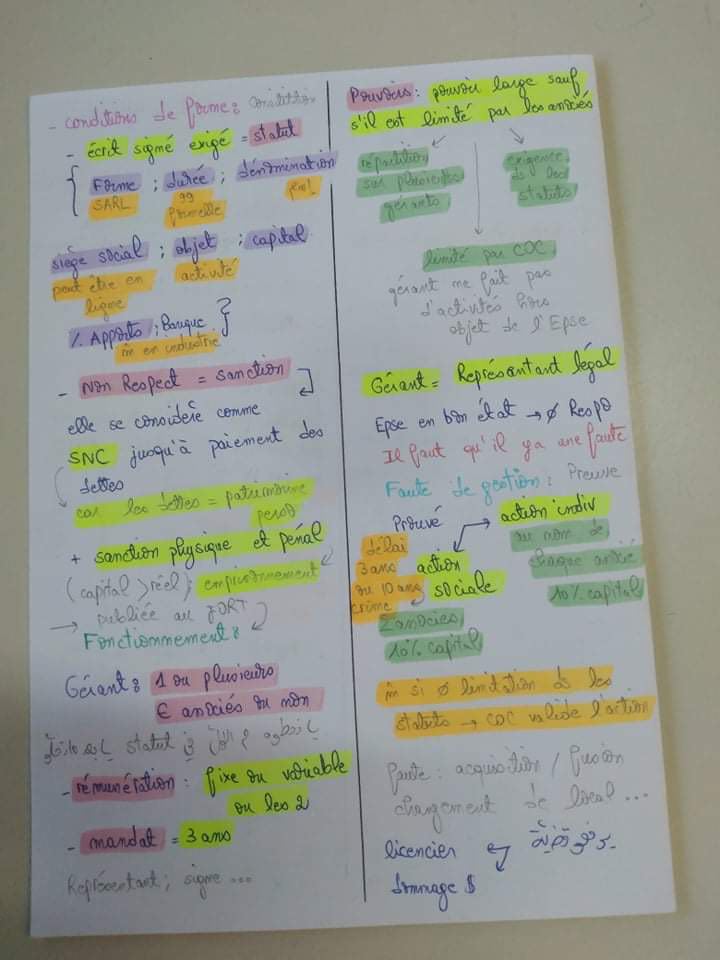 - conditions de forme: constitution
- écrit signé exigé = statut
Forme ; durée ; dénomination
SARL 99
siège social ; objet ; capital
peut être en activité
ligne
% Apports ; Banque
m̂ en industrie
- Non Respect = sanction
elle se considère comme
SNC jusqu'à paiement des
dettes
car les dettes = patrimoine
perso
+ sanction physique et pénal
(capital > réel) ; emprisonnement
→ publiée au JORT
Fonctionnement :
Gérant : 1 ou plusieurs
∈ associés ou non
statut
- rémunération : fixe ou variable
ou les 2
- mandat = 3 ans
Représentant ; signe ...
Pouvoirs : pouvoir large sauf
s'il est limité par les associés
répartition
sur plusieurs
gérants
exigence
ds les
statuts
limité par COC
gérant ne fait pas
d'activités hors
objet de l'Epse
Gérant = Représentant légal
Epse en bon état → Ø Respo
Il faut qu'il y a une faute
Faute de gestion : Preuve
Prouvé → action indiv
au nom de
chaque associé
10% capital
délai
3 ans
ou 10 ans
crime
action
sociale
2 associés,
10% capital
m̂ si Ø limitation ds les
statuts → COC valide l'action
faute : acquisition / fusion
changement de local ...
licencier
dommage $